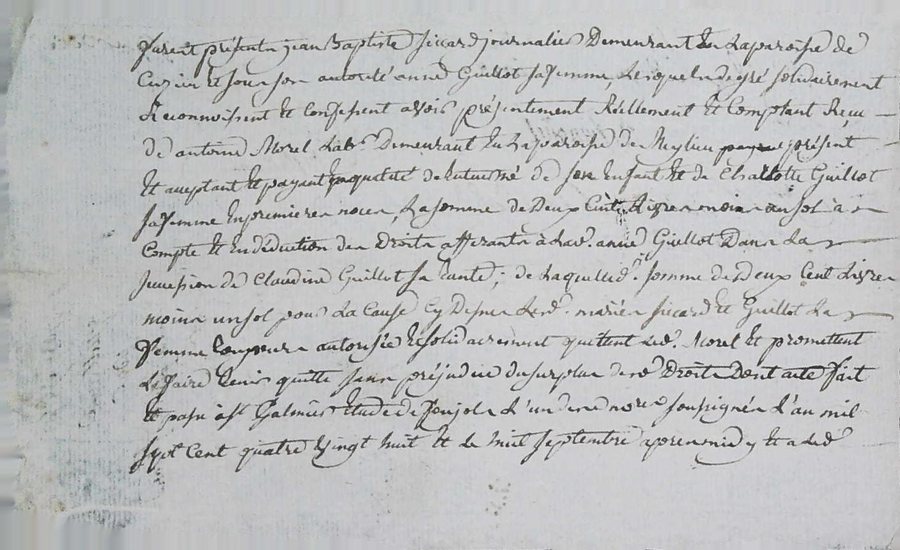 furent présents jean Baptiste siccard journalier Demeurant En La paroisse de
Cuzieu Et sous son autorité anne Guillot sa femme, Lesquels de gré solidairement
Reconnoissent Et Confessent avoir présentement Réellement Et Comptant Reçu
de antoine Morel Labr Demeurant En La paroisse de Meylieu présent
Et aceptant Et payant En qualité de tuteur né de ses Enfants Et de Charlotte Guillot
sa femme En premieres noces, La somme de Deux Cent Livres moins un sol à
Compte Et En déduction des Droits afferants à Lad. anne Guillot Dans La
succession de Claudine Guillot sa tante; de Laquelle d. somme de Deux Cent Livres
moins un sol pour La Cause Cy Dessus Lesd. mariés siccard Et Guillot La
femme toujours autorisée Et solidairement quittent Led. Morel Et promettent
Le faire tenir quitte sans préjudice du surplus desd Droits Dont acte fait
Et passé à st Galmier Etude de Ponjols L'un des nores soussignés L'an mil
sept Cent quatre Vingt huit Et Le huit septembre apres midy Et a Led